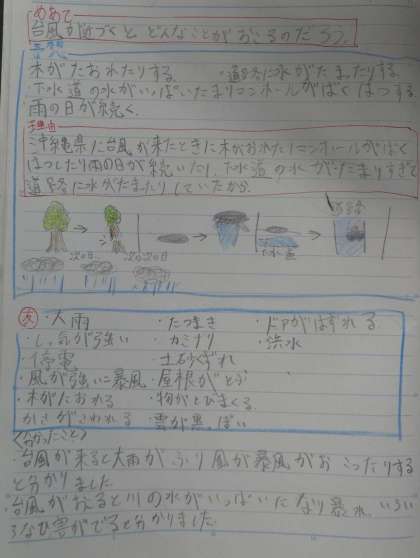 めあて
台風が近づくと、どんなことがおこるのだろう。
予想
木がたおれたりする。 ・道路に水がたまったりする
下水道の水がいっぱいたまりマンホールがばくはつする。
雨の日が続く。
理由
沖縄県に台風が来たときに木がおれたりマンホールがばく
はつしたり雨の日が続いたり、下水道の水がたまりすぎて
道路に水がたまったりしていたから。
道路
次の日 次の次の日 下水道
友 ・大雨 ・たつまき ・ドアがはずれる
・しっ気が強い ・カミナリ ・洪水
・停電 ・土砂くずれ
・風が強い→暴風 ・屋根がとぶ
・木がたおれる ・物がとびまくる
かさがこわれる ・雲が黒っぽい
〈分かったこと〉
・台風が来ると大雨がふり風が暴風がおこったりする
と分かりました
・台風がおこると川の水がいっぱいになり暴水、いろい
ろなひ害がでると分かりました。